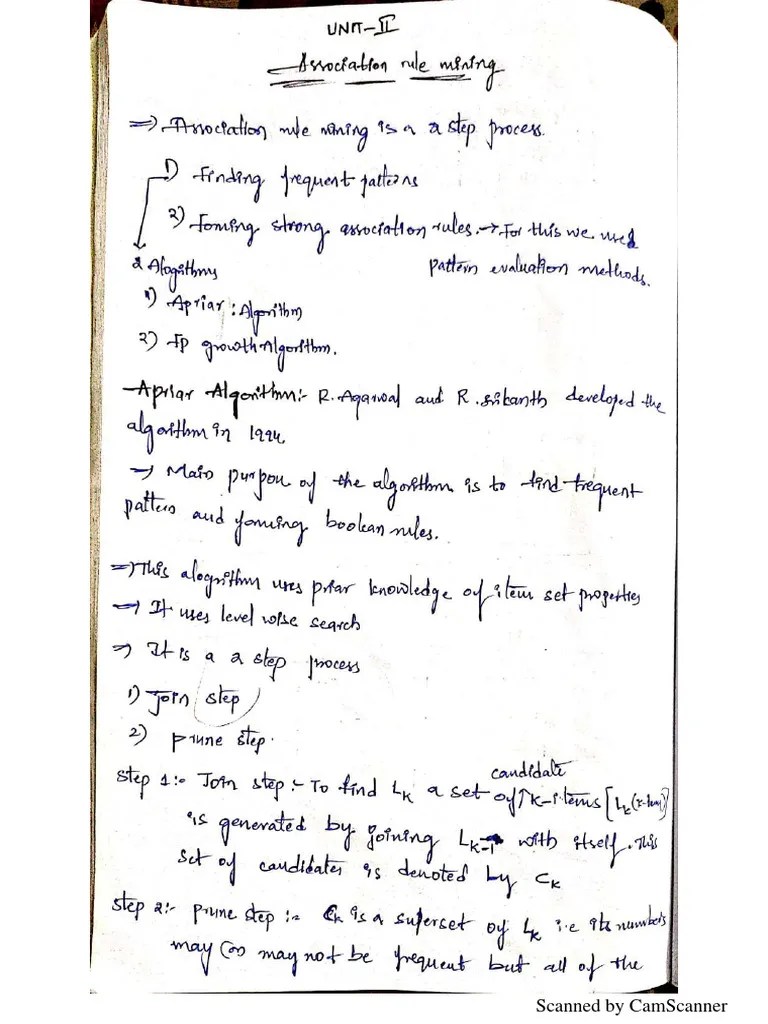 UNIT-II
Association rule mining
=> Association rule mining is a 2 step process.
1) Finding frequent patterns
2) Foming strong association rules. → For this we used
pattern evaluation methods.
2 Alogithms
1) Apriar : Algorithm
2) Fp growth Algorithm.
Apriar Algorithm:- R. Agarwal and R. srikanth developed the
algorithm in 1994
→ Main purpou of the algorithm is to find frequent
pattern and foming boolean rules.
=> This alogrithm uses priar knowledge of item set properties
=> It uses level wise search
=> It is a 2 step process
1) Join step
2) prune step.
candidate
step 1:- Join step:- To find Lk a set of ↑ k-items [Lk
is generated by joining Lk-1 with itself. This
set of candidates is denoted by Ck
step 2:- prune step:- Ck is a superset of Lk i.e its numbers
may (or) may not be frequent but all of the
Scanned by CamScanner